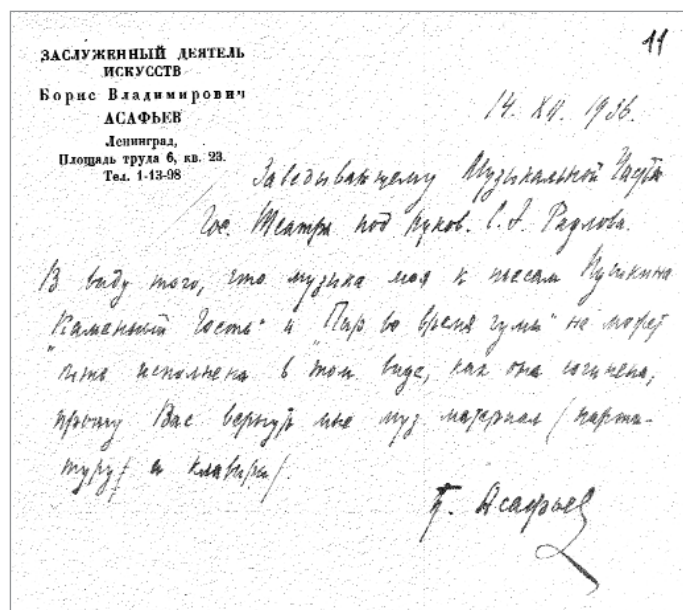 11
ЗАСЛУЖЕННЫЙ ДЕЯТЕЛЬ
ИСКУССТВ
Борис Владимирович
АСАФЬЕВ
Ленинград,
Площадь труда 6, кв. 23.
Тел. 1-13-98
14. XII. 1936.
Заведывающему Музыкальной Части
Гос. Театра под руков. С. Э. Радлова.
В виду того, что музыка моя к пьесам Пушкина
"Каменный Гость" и "Пир во время чумы" не может
быть исполнена в том виде, как она сочинена,
прошу Вас вернуть мне муз материал (парти-
туру и клавиры)
Б. Асафьев